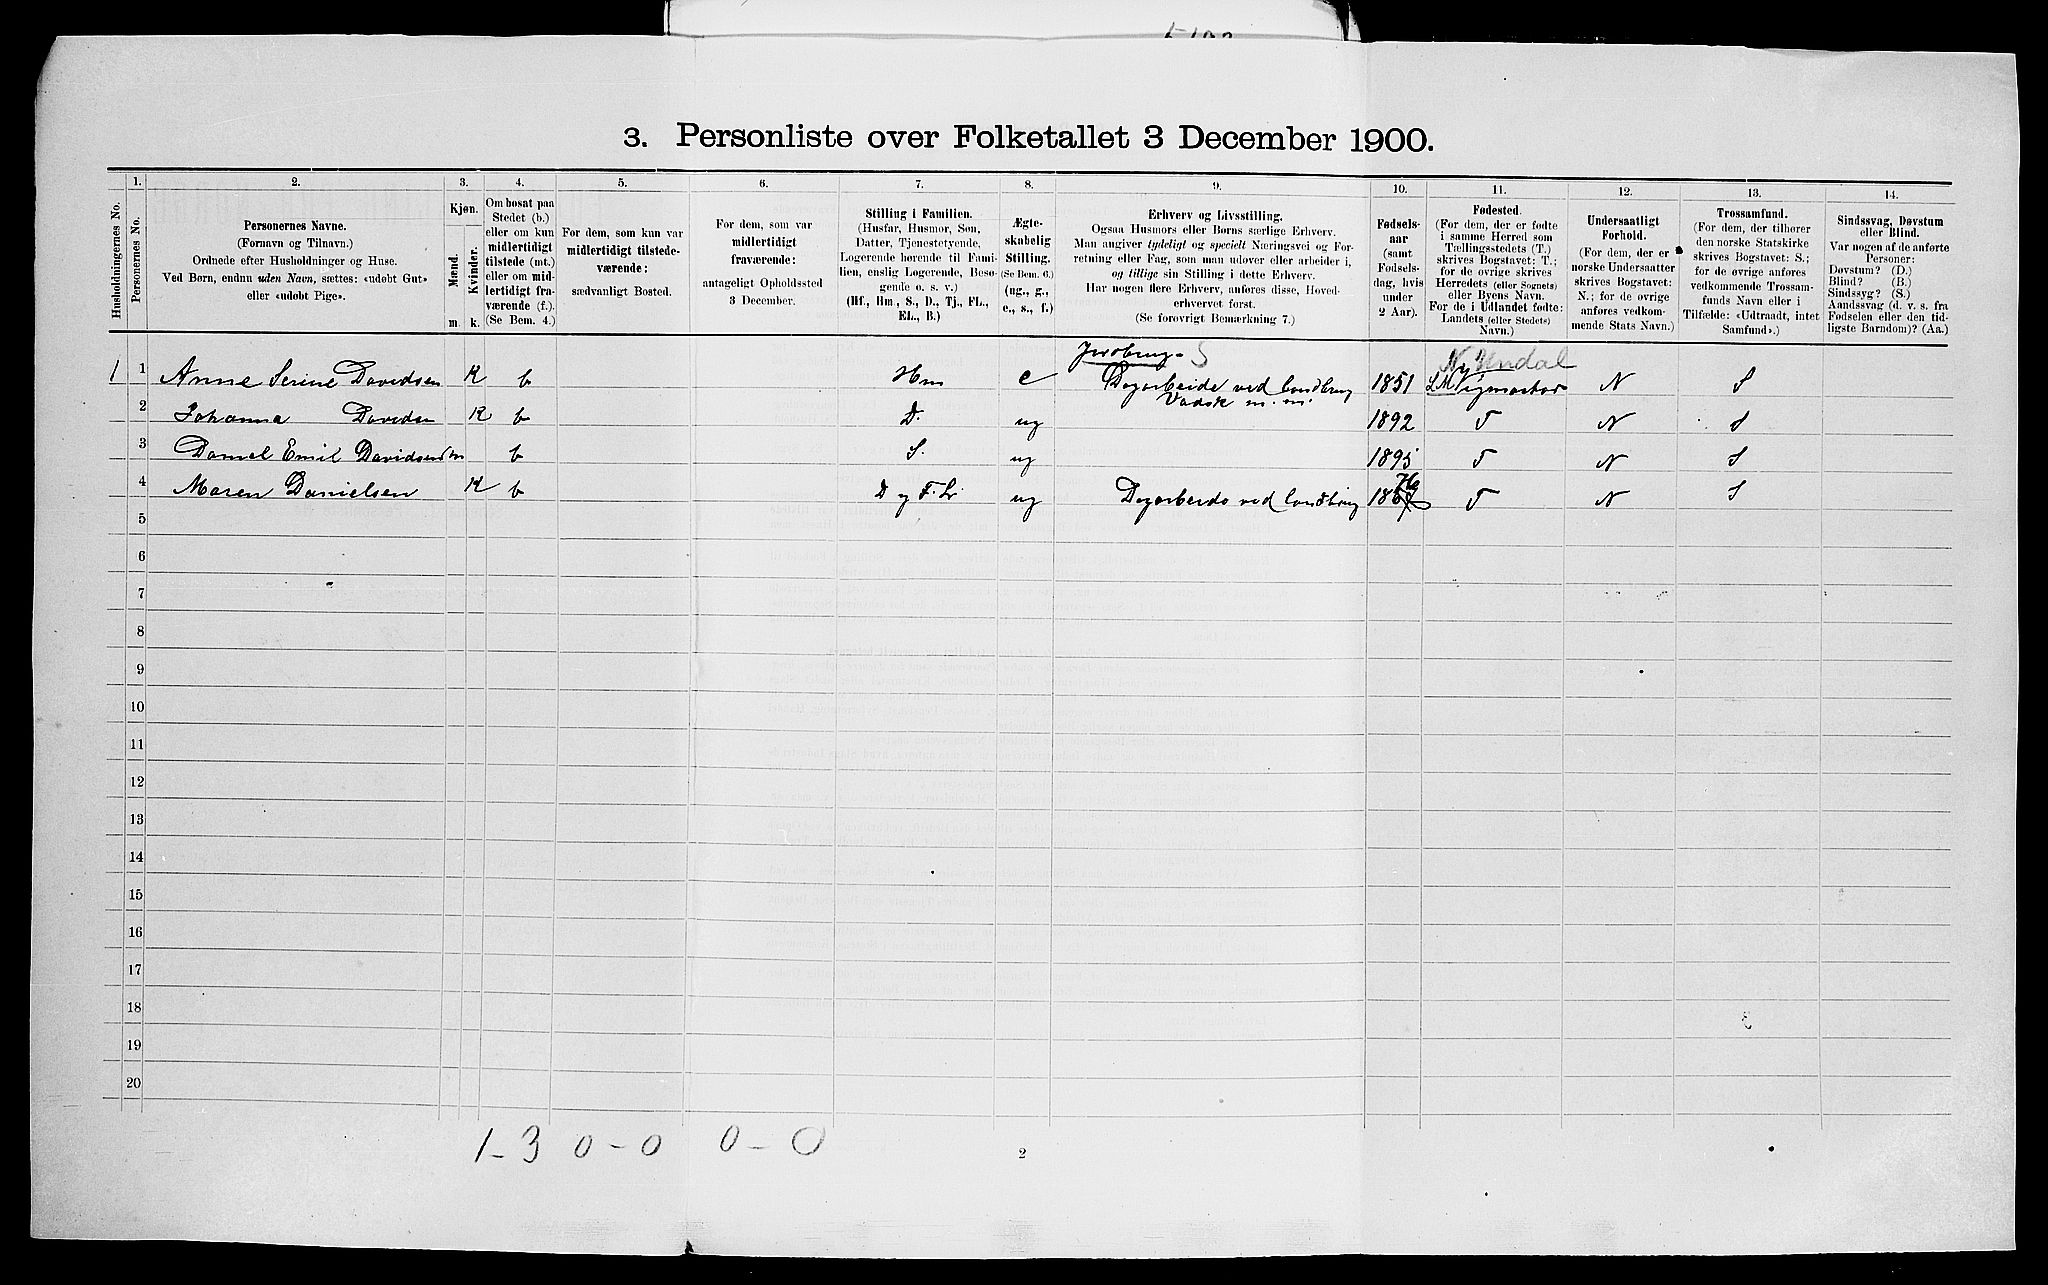 3. Personliste over Folketallet 3 December 1900.
Husholdningernes No.
1.
Personernes No.
2.
Personernes Navne.
(Fornavn og Tilnavn.)
Ordnede efter Husholdninger og Huse.
Ved Børn, endnu uden Navn, sættes: «udøbt Gut»
eller «udøbt Pige».
3.
Kjøn.
Mænd.
Kvinder.
m. k.
4.
Om bosat paa
Stedet (b.)
eller om kun
midlertidigt
tilstede (mt.)
eller om mid-
lertidigt fra-
værende (f.).
(Se Bem. 4.)
5.
For dem, som kun var
midlertidigt tilstede-
værende:
sædvanligt Bosted.
6.
For dem, som var
midlertidigt
fraværende:
antageligt Opholdssted
3 December.
7.
Stilling i Familien.
(Husfar, Husmor, Søn,
Datter, Tjenestetyende,
Logerende hørende til Fami-
lien, enslig Logerende, Besø-
gende o. s. v.)
(Hf., Hm., S., D., Tj., FL.,
EL., B.)
8.
Ægte-
skabelig
Stilling.
(Se Bem. 6.)
(ug., g.,
e., s., f.)
9.
Erhverv og Livsstilling.
Ogsaa Husmors eller Børns særlige Erhverv.
Man angiver tydeligt og specielt Næringsvei og For-
retning eller Fag, som man udøver eller arbeider i,
og tillige sin Stilling i dette Erhverv.
Har nogen flere Erhverv, anføres disse, Hoved-
erhvervet først.
(Se forøvrigt Bemærkning 7.)
10.
Fødsels-
aar
(samt
Fødsels-
dag, hvis
under
2 Aar).
11.
Fødested.
(For dem, der er fødte
i samme Herred som
Tællingsstedets (T.)
skrives Bogstavet: T.;
for de øvrige skrives
Herredets (eller Sognets)
eller Byens Navn.
For de i Udlandet fødte:
Landets (eller Stedets)
Navn.)
12.
Undersaatligt
Forhold.
(For dem, der er
norske Undersaatter
skrives Bogstavet:
N.; for de øvrige
anføres vedkom-
mende Stats Navn.)
13.
Trossamfund.
(For dem, der tilhører
den norske Statskirke
skrives Bogstavet: S.;
for de øvrige anføres
vedkommende Trossam-
funds Navn eller i
Tilfælde: «Udtraadt, intet
Samfund».)
14.
Sindssvag, Døvstum
eller Blind.
Var nogen af de anførte
Personer:
Døvstum? (D.)
Blind? (B.)
Sindssyg? (S.)
Aandssvag (d. v. s. fra
Fødselen eller den tid-
ligste Barndom)? (Aa.)
Jordbrug S Undal
1 1 Anne Serine Davidsen K b Hm e Dagarbeide ved landbrug 1851 N S
Vadsk m. m.
2 Johanna Davidsen K b D. ug 1892 T N S
3 Daniel Emil Davidsen m b S. ug 1895 T N S
4 Maren Danielsen K b ug Dagarbeide ved landbrug T N S
5
6
7
8
9
10
11
12
13
14
15
16
17
18
19
20
1-3 0-0 0-0
2